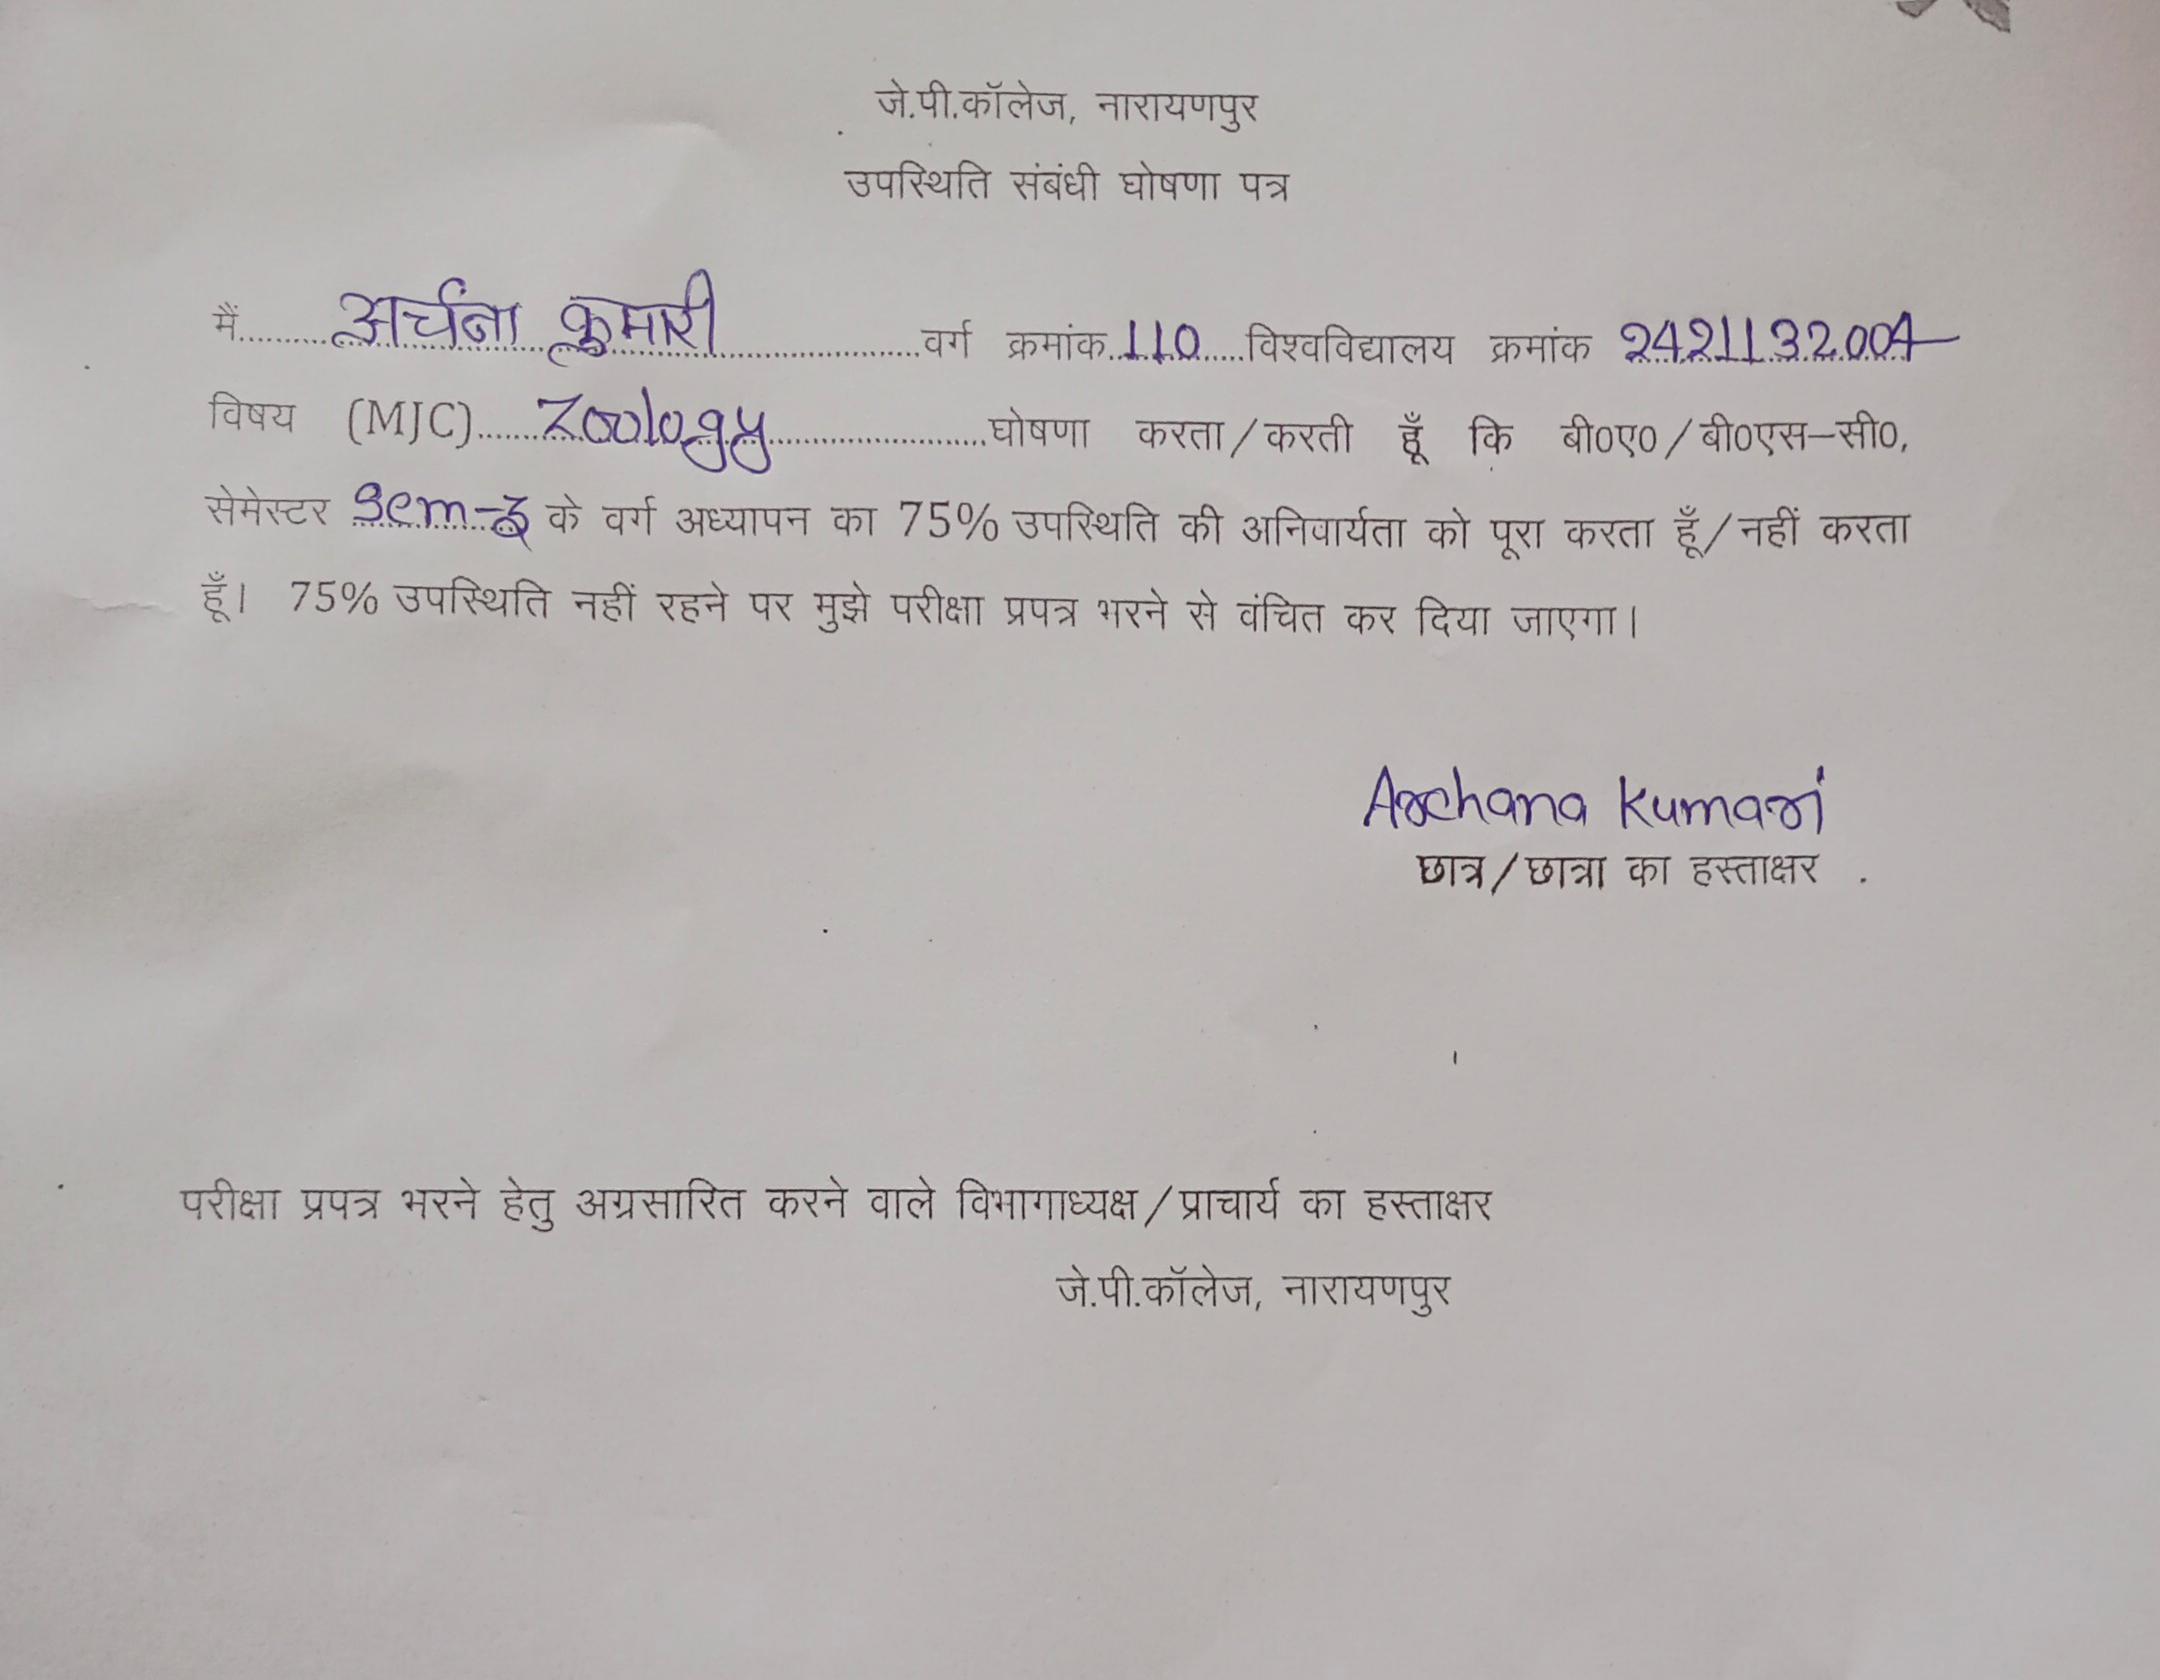 जे.पी.कॉलेज, नारायणपुर
उपस्थिति संबंधी घोषणा पत्र
मैं.........अर्चना कुमारी....................वर्ग क्रमांक.110.....विश्वविद्यालय क्रमांक 2421132004
विषय (MJC)......Zoology......................घोषणा करता/करती हूँ कि बी0ए0/बी0एस–सी0,
सेमेस्टर Sem- के वर्ग अध्यापन का 75% उपस्थिति की अनिवार्यता को पूरा करता हूँ/नहीं करता
हूँ। 75% उपस्थिति नहीं रहने पर मुझे परीक्षा प्रपत्र भरने से वंचित कर दिया जाएगा।
Archana Kumari
छात्र/छात्रा का हस्ताक्षर
परीक्षा प्रपत्र भरने हेतु अग्रसारित करने वाले विभागाध्यक्ष/प्राचार्य का हस्ताक्षर
जे.पी.कॉलेज, नारायणपुर